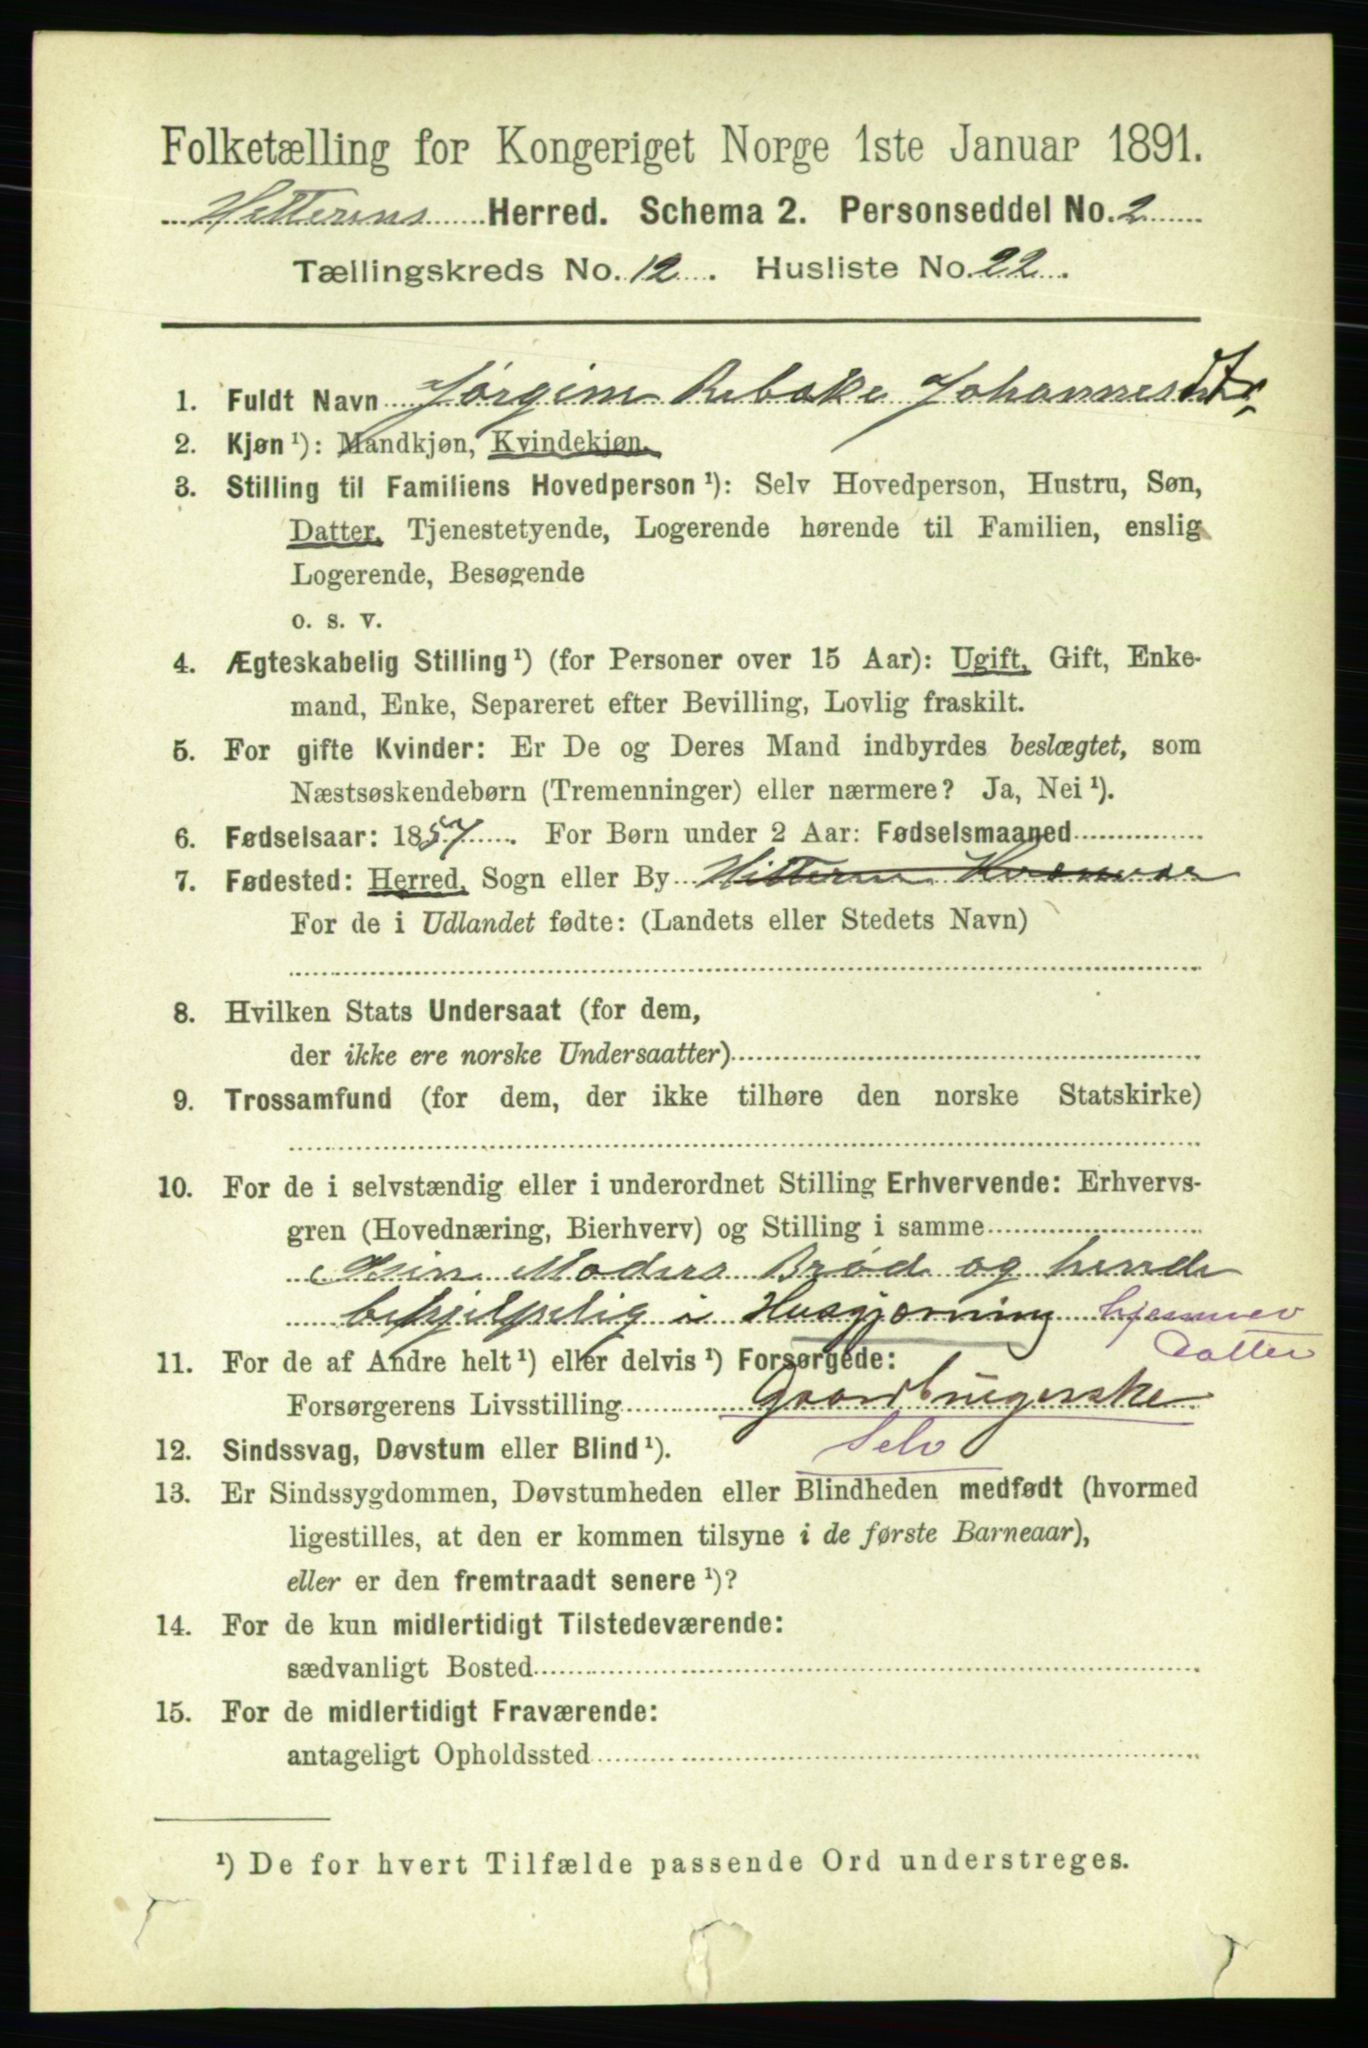 Folketælling for Kongeriget Norge 1ste Januar 1891.
Hitterens Herred. Schema 2. Personseddel No. 2
Tællingskreds No. 12. Husliste No. 22.
1. Fuldt Navn Jørgine Rebekke Johannesdtr.
2. Kjøn¹): Mandkjøn, Kvindekjøn.
3. Stilling til Familiens Hovedperson¹): Selv Hovedperson, Hustru, Søn,
Datter, Tjenestetyende, Logerende hørende til Familien, enslig
Logerende, Besøgende
o. s. v.
4. Ægteskabelig Stilling¹) (for Personer over 15 Aar): Ugift, Gift, Enke-
mand, Enke, Separeret efter Bevilling, Lovlig fraskilt.
5. For gifte Kvinder: Er De og Deres Mand indbyrdes beslægtet, som
Næstsøskendebørn (Tremenninger) eller nærmere? Ja, Nei¹).
6. Fødselsaar: 1857. For Børn under 2 Aar: Fødselsmaaned
7. Fødested: Herred, Sogn eller By Hitteren
For de i Udlandet fødte: (Landets eller Stedets Navn)
8. Hvilken Stats Undersaat (for dem,
der ikke ere norske Undersaatter)
9. Trossamfund (for dem, der ikke tilhøre den norske Statskirke)
10. For de i selvstændig eller i underordnet Stilling Erhvervende: Erhvervs-
gren (Hovednæring, Bierhverv) og Stilling i samme
Sin Moders Brød og hende
behjelpelig i Husgjerning hjemmev
Datter
11. For de af Andre helt¹) eller delvis¹) Forsørgede:
Forsørgerens Livsstilling Gaardbrugerske
Selv
12. Sindssvag, Døvstum eller Blind¹).
13. Er Sindssygdommen, Døvstumheden eller Blindheden medfødt (hvormed
ligestilles, at den er kommen tilsyne i de første Barneaar),
eller er den fremtraadt senere¹)?
14. For de kun midlertidigt Tilstedeværende:
sædvanligt Bosted
15. For de midlertidigt Fraværende:
antageligt Opholdssted
¹) De for hvert Tilfælde passende Ord understreges.